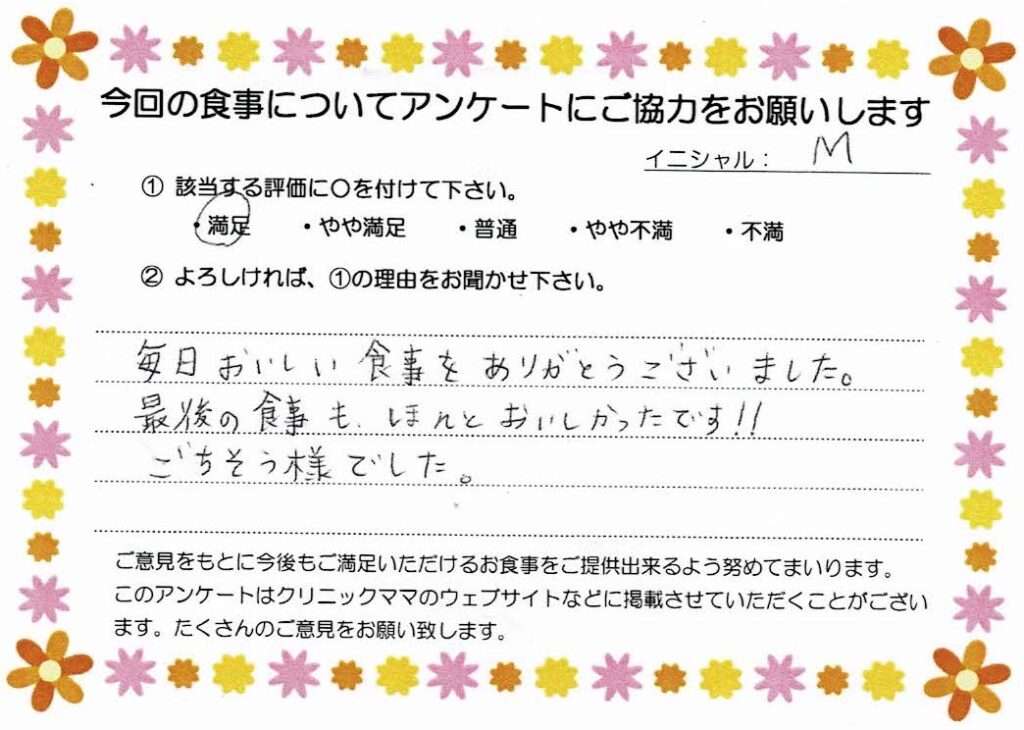 今回の食事についてアンケートにご協力をお願いします
イニシャル： M
① 該当する評価に〇を付けて下さい。
・満足 ・やや満足 ・普通 ・やや不満 ・不満
② よろしければ、①の理由をお聞かせ下さい。
毎日おいしい食事をありがとうございました。
最後の食事も、ほんとおいしかったです!!
ごちそう様でした。
ご意見をもとに今後もご満足いただけるお食事をご提供出来るよう努めてまいります。
このアンケートはクリニックママのウェブサイトなどに掲載させていただくことがござい
ます。たくさんのご意見をお願い致します。